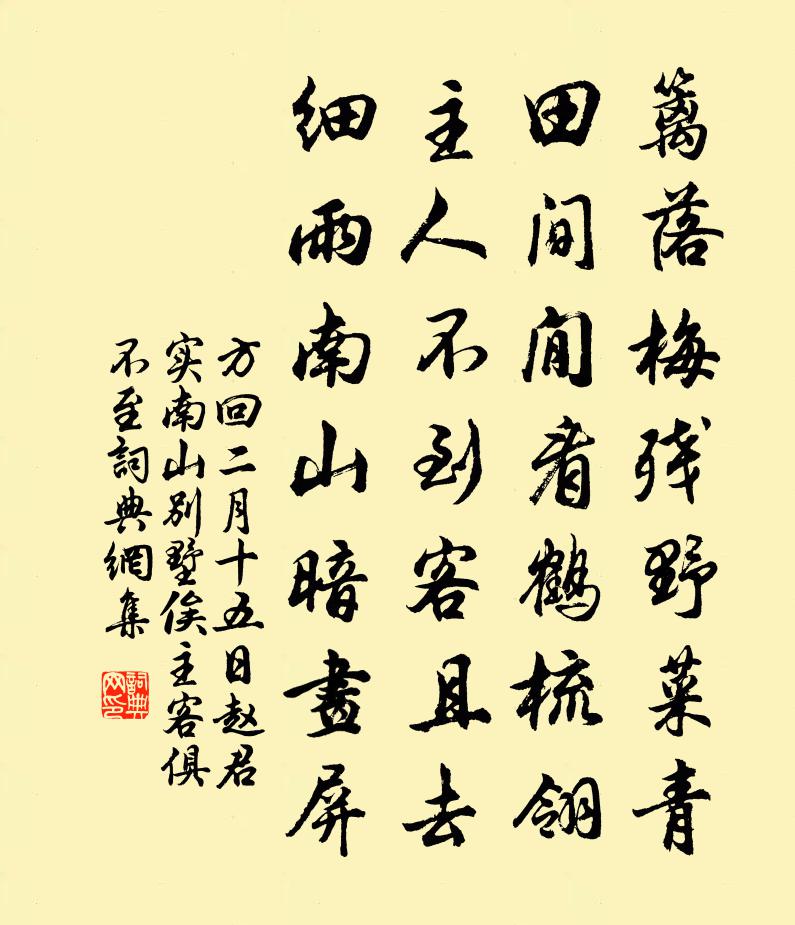 籬落梅残野菜青
田间闲看鶴梳翎
主人不到客且去
细雨南山暗畫屏
方回二月十五日赵君
实南山别墅俟主客俱
不至詞典網集
詞典
网印